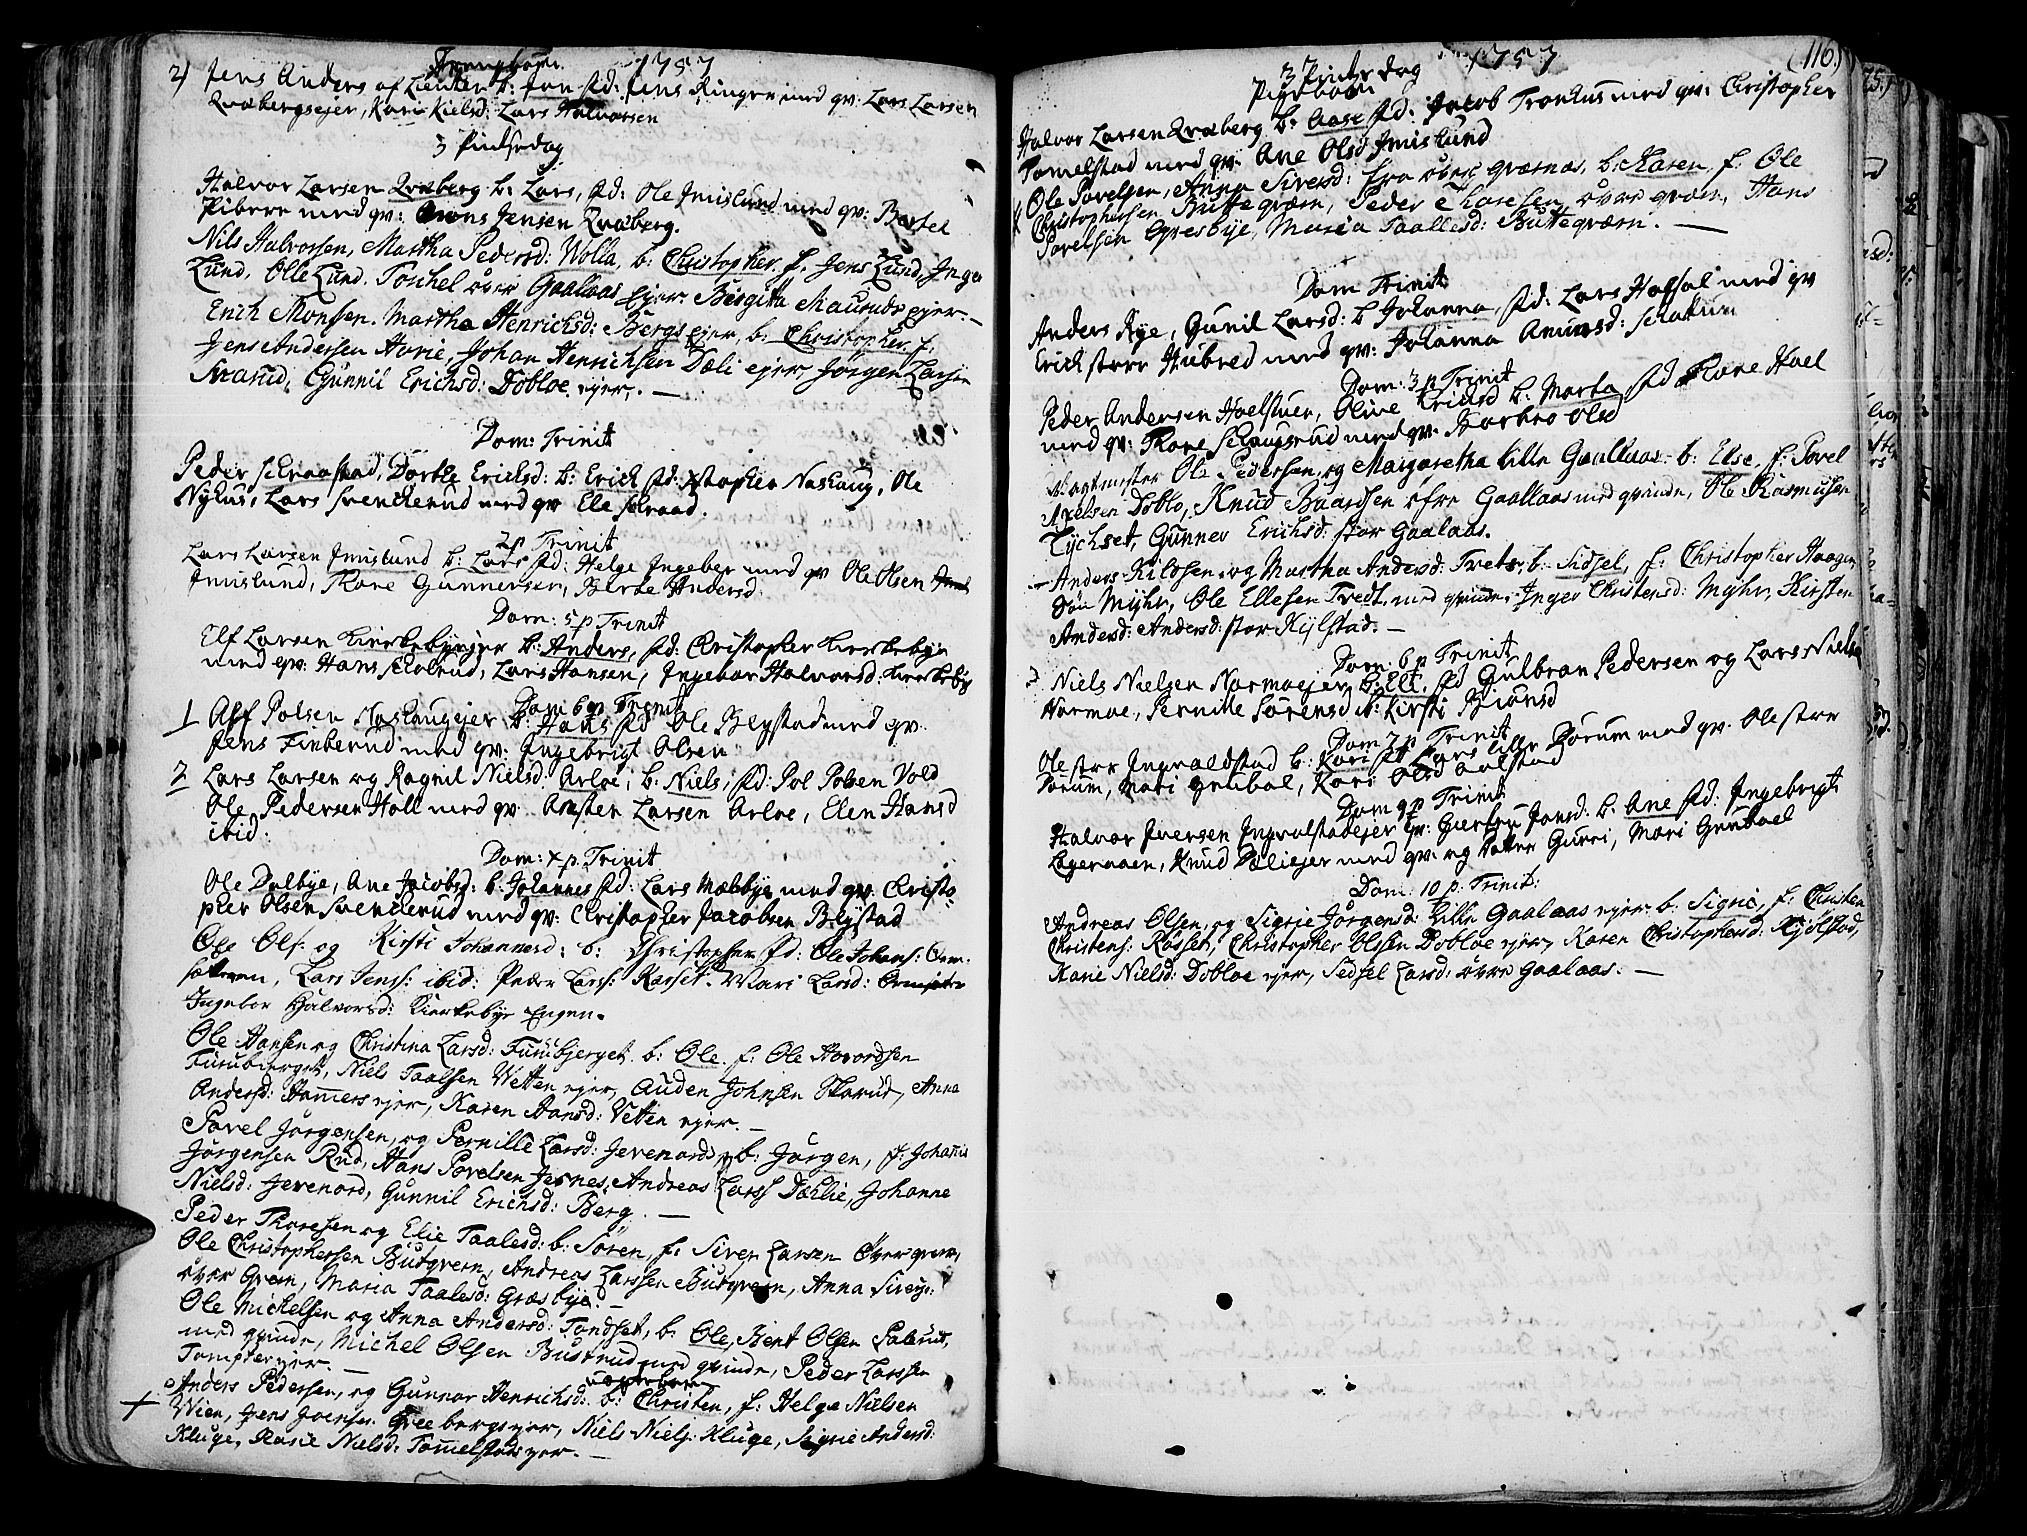 Drengebørn 1757
2) Jens Anders af Lienten b: Jon fd: Jens Ringer med qv: Lars Larsen
Qvæbergsejer, Kari Kielsd: Lars Halvorsen
3 Pindsedag
Halvor Larsen Qvæberg b: Lars, fd: Ole Imislund med qv: Bertel
Pibere med qv: Mons Jensen Qvæberg.
Nils Halvorsen, Martha Pedersd: Wolla, b: Christopher f. Jens Lund, Inger
Lund, Olle Lund. Torchel över Gaalaas ejer. Birgitta Maurudsejer. –
Erich Monsen. Martha Henrichsd: Bergsejer, b: Christopher f:
Jens Andersen Hovie, Johan Henrichsen Dæli ejer, Jørgen Larsen
Svarud, Gunnil Erichsd: Dobloe ejer. –
Dom: Trinit
Peder Skraastad, Dorthe Erichsd: b: Erich fd: Xstopher Naskaug, Ole
Nyhus, Lars Svenkerud med qv Ele Skraad.
2 p Trinit
Lars Larsen Imislund b: Lars fd: Helge Ingeber med qv Ole Olsen
Imislund, Thore Gunnersen, Berte Andersd
Dom: 5 p Trinit
Elf Larsen Kierkebyejer b: Anders, fd: Christopher Kierkebye
med qv: Hans Skolrud, Lars Hansen, Ingebor Halvorsd: Kierkeby
Dom 6 p Trinit
1 Alf Polsen Naskaugejer b: Hans fd Ole Blystad med qv.
Jens Finberud med qv: Ingebrigt Olsen
2 Lars Larsen og Ragnil Nielsd: Arloe, b: Niels, fd: Pol Polsen Vold
Ole Pedersen Holl med qv Aresten Larsen Arloe, Elen Hansd
ibid:
Dom: X p. Trinit
Ole Dalbye, Ane Jacobsd: b: Johannes fd: Lars Mæbbye med qv: Christo-
pher Olsen Svenkerud med qv: Christopher Jacobsen Blystad
Ole Ols: og Kirsti Johannesd: b: Christopher fd: Ole Johans: Orm-
sætteren, Lars Jens: ibid: Peder Lars: Rasset. Mari Larsd: Ormsæter
Ingebor Halvorsd: Kierkebye Engen.
Ole Hansen og Christina Larsd: Furubjerget. b: Ole. f: Ole Hovordsen
Furubierget, Niels Taalsen Wetten ejer, Auden Johnsen Skarud, Anna
Andersd: Hamersejer, Karen Hansd: Vetten ejer. –
Povel Jørgensen, og Pernille Larsd: Jevenord, b: Jørgen, f: Johañis
Jørgensen Rud, Hans Povelsen Jernes, Andreas Larss Dæhlie, Johanne
Nielsd: Jevenord, Gunnil Erichsd: Berg. –
Peder Thoresen og Elie Taalesd: b: Søren, f: Siver Larsen Över qvern,
Ole Christophersen Butqvern, Andreas Larssen Butqvern, Anna Sivers:
över Qvern, Maria Taalesd: Græsbye. –
Ole Michelsen og Anna Andersd: Tondset, b: Ole, Bent Olsen Palerud,
med qvinde, Michel Olsen Bustrud med qvinde, Peder Larssen
Tompter ejer. –
uægtebarn
+ Anders Pedersen, og Gunnor Henrichsd: b: Christen, f: Helge Nielsen
Wien, Jens Joenss: Qveebergsejer, Niels Niels: Kluge, Sigrie Andersd:
Kluge, Marie Nielsd: Tommelstadsejer. –
(116)
1757
3 Pintsedag
Pigebørn
Halvor Larsen Qvæberg b: Aase fd: Jacob Tronhus med qv: Christopher
Tomelstad med qv: Ane Olsd Imislund
Ole Povelsen, Anna Siversd: fra över qværnes, b: Karen f: Ole
Christophersen Butteqværn, Peder Thoresen, övre qværn, Hans
Povelsen Gresbye, Maria Taallesd: Butteqværn. –
Dom Trinit
Anders Rye, Gunil Larsd: b Johanna, fd: Lars Hafsal med qv
Erich store Hubred med qv: Johanna Amunsd: Skattum
Dom: 3 p Trinit
Peder Andersen Hoelstuen, Olive Ericsd b: Marta fd Thore Hoel
med qv: Thore Skaugsrud med qv: Barbro Olsd
Vagtmester Ole Pedersen, og Margaretha lille Gaallaas. b: Else, f: Povel
Axelsen Doblo, Knud Baardsen öfre Gaallaas med qvinde, Ole Rasmusen
Tychset, Gunner Erichsd: stor Gaalaas.
– Anders Kildsen, og Martha Andersd: Tveter, b: Sidsel, f: Christopher Haagen-
søn Myhr, Ole Ellefsen Tvedt, med qvinde, Inger Christensd: Myhr, Kirsten
Andersd: Andersd: stor Kylstad. –
Dom: 6 p Trinit
Niels Nielsen Normoejer b: Eli, fd Gulbran Pedersen og Lars Nielsen
Normoe, Pernille Sørensd b: Kirsti Biønsd
Dom 7 p Trinit
Ole store Ingvaldstad b: Kari fd Lars lille Börum med qv. Ole store
Börum, Mari Grubol, Kari Olsd Aalstad
Dom 9 p Trinit
Halvor Iversen Ingvalstadejer qv: Giertru Jonsd: b: Ane fd: Ingebrigt
Lagernoen, Knud Dæliejer med qv: og Datter Gurri, Mari Grubael
Dom: 10 p. Trinit:
Andreas Olsen, og Sigrie Jörgensd: Lille Gaalaas ejer b: Sigrie, f: Christen
Christens: Rosset, Christopher Olssen Dobloe ejer, Karen Christophersd: Kjölstad,
Marie Nielsd: Dobloe ejer, Sidsel Larsd: övre Gaalaas. –